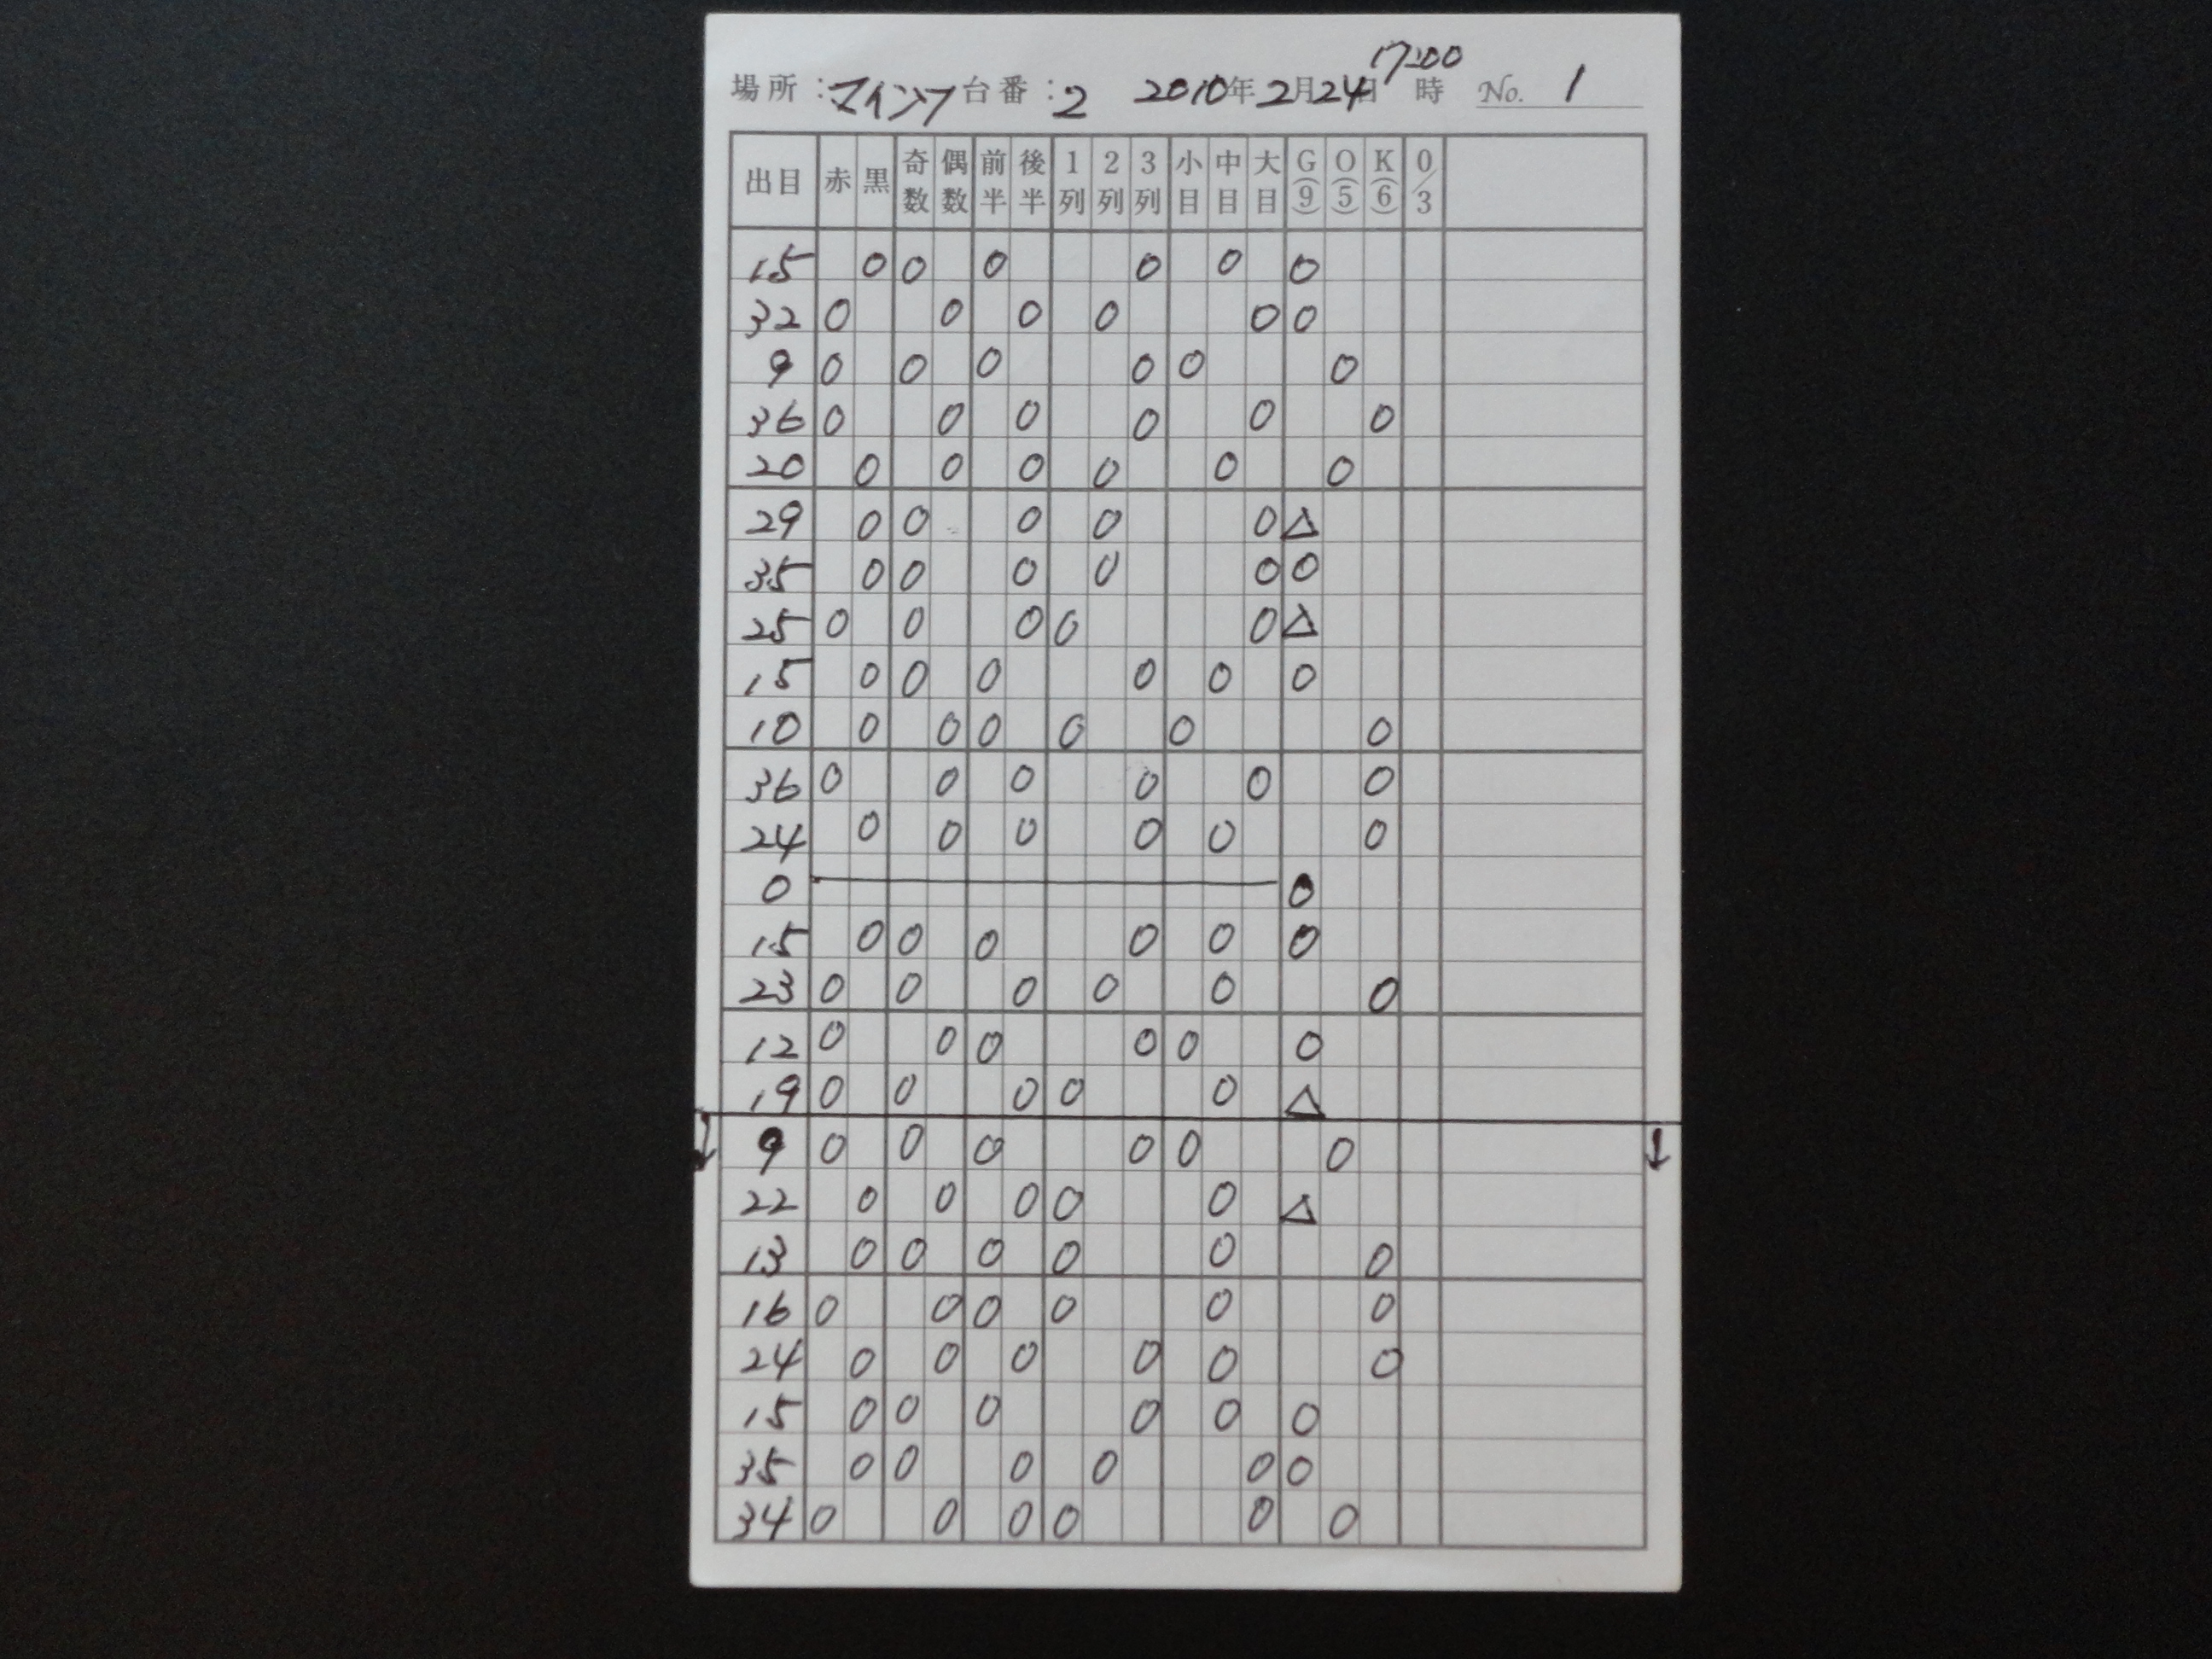 場所:マインフ 台番:2 2010年2月24日17:00時 No. 1
出目 赤 黒 奇数 偶数 前半 後半 1列 2列 3列 小目 中目 大目 G(9) O(5) K(6) 0/3
15 0 0 0 0 0 0
32 0 0 0 0 0 0
9 0 0 0 0 0 0
36 0 0 0 0 0 0
20 0 0 0 0 0 0
29 0 0 0 0 0 △
35 0 0 0 0 0 0
25 0 0 0 0 0 △
15 0 0 0 0 0 0
10 0 0 0 0 0 0
36 0 0 0 0 0 0
24 0 0 0 0 0 0
0 0
15 0 0 0 0 0 0
23 0 0 0 0 0 0
12 0 0 0 0 0 0
19 0 0 0 0 0 △
↓ 9 0 0 0 0 0 0 ↓
22 0 0 0 0 0 △
13 0 0 0 0 0 0
16 0 0 0 0 0 0
24 0 0 0 0 0 0
15 0 0 0 0 0 0
35 0 0 0 0 0 0
34 0 0 0 0 0 0